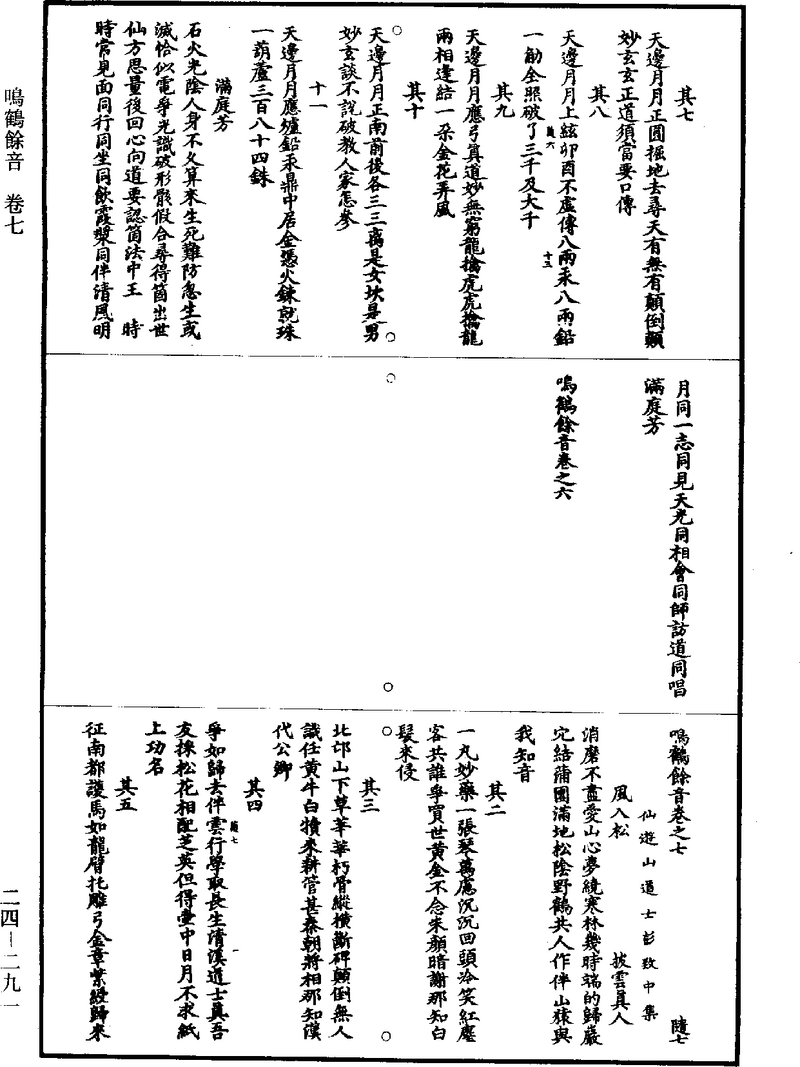 鳴鶴餘音　卷七
二四－二九一
其七
天邊月月正圓掘地去尋天有無有顛倒顛
妙玄玄正道須當要口傳
其八
天邊月月上絃卯酉不虛傳八兩汞八兩鉛
一觔全照破了三千及大千
其九
天邊月月應弓真道妙無窮龍擒虎虎擒龍
兩相逢結一朵金花弄風
其十
天邊月月正南前後各三三离是女坎是男
妙玄談不說破教人家怎參
十一
天邊月月應爐鉛汞鼎中居金憑火鍊就珠
一葫蘆三百八十四銖
滿庭芳
石火光陰人身不久算來生死難防忽生或
滅恰似電爭光識破形骸假合尋得箇出世
仙方思量後回心向道要認箇法中王　時
時常見面同行同坐同飲霞漿同伴清風明
月同一志同見天光同相會同師訪道同唱
滿庭芳
鳴鶴餘音卷之六
鳴鶴餘音卷之七　隨七
仙遊山道士彭致中集
風入松　披雲真人
消磨不盡愛山心夢繞寒林幾時端的歸巖
穴結蒲團滿地松陰野鶴共人作伴山猿與
我知音
其二
一丸妙藥一張琴萬慮沉沉回頭冷笑紅塵
客共誰爭買世黃金不念朱顏暗謝那知白
髮來侵
其三
北邙山下草萋萋朽骨縱橫斷碑顛倒無人
識任黃牛白犢來耕管甚秦朝將相那知漢
代公卿
其四
爭如歸去伴雲行學取長生清溪道士真吾
友採松花相配芝英但得壺中日月不求紙
上功名
其五
征南都護馬如龍臂托雕弓金章紫綬歸來